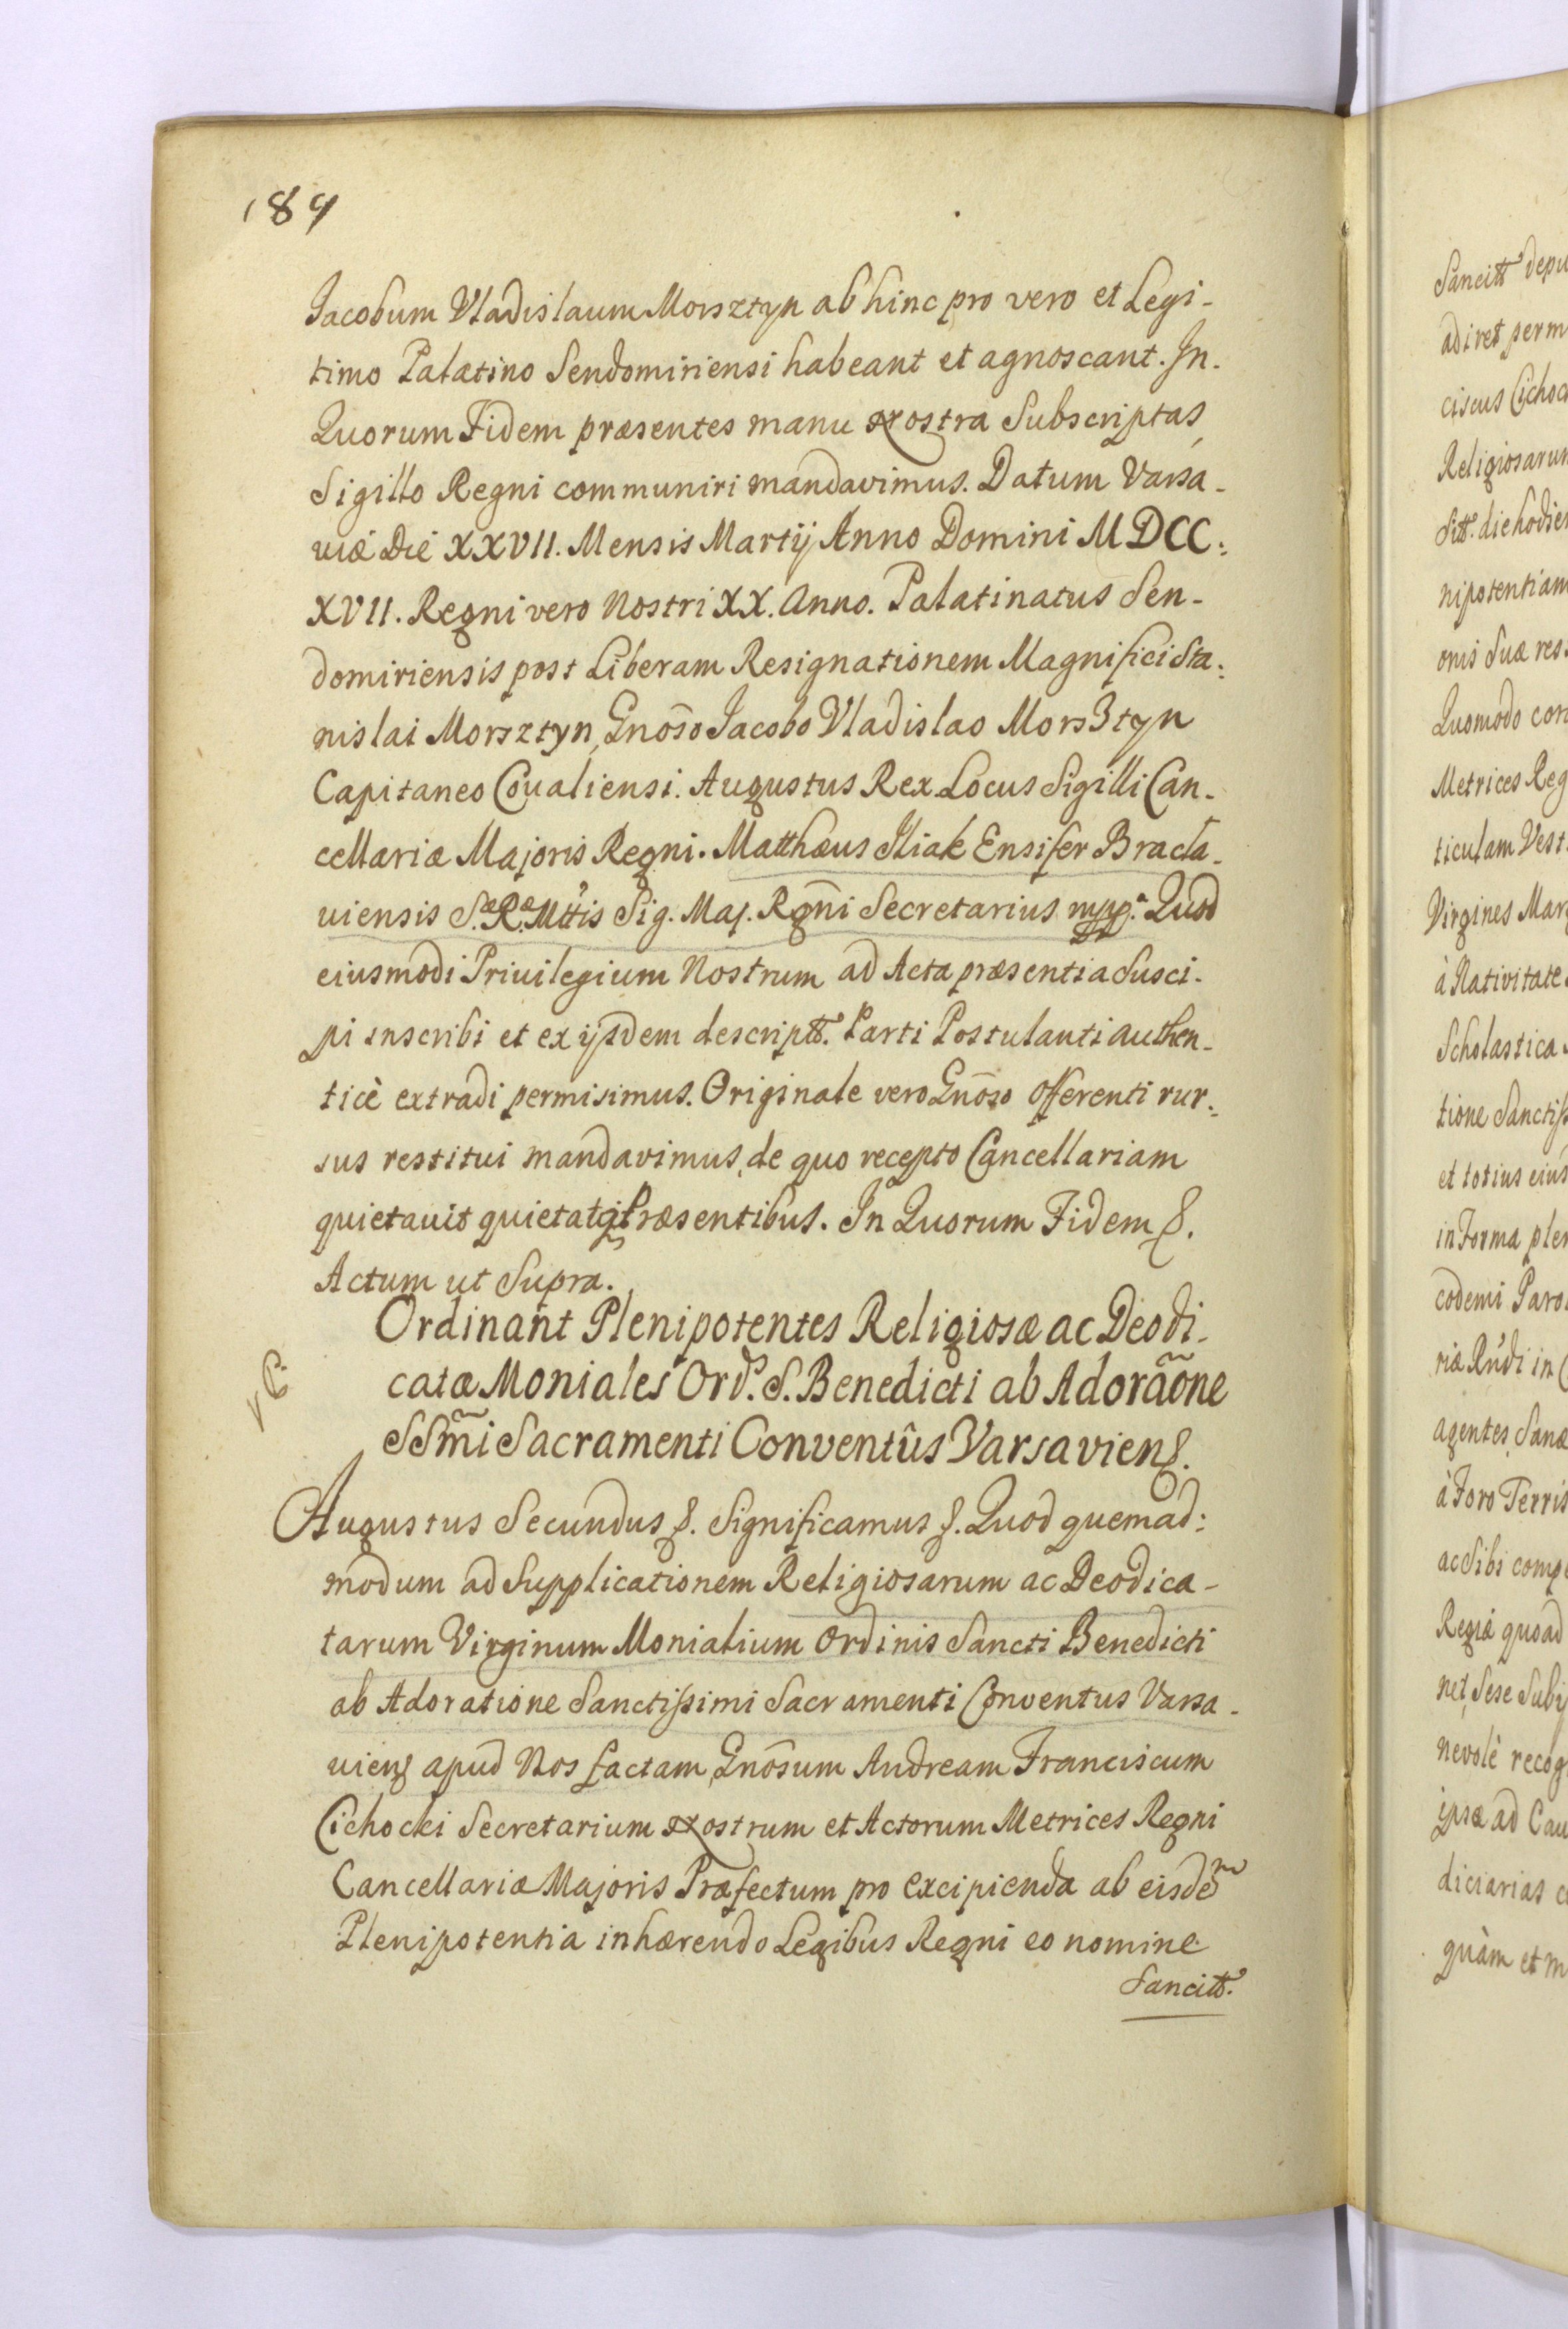 189
Jacobum Vladislaum Morsztyn abhinc pro vero et Legi-
timo Palatino Sendomiriensi habeant et agnoscant. In
Quorum Fidem præsentes manu Nostra Subscriptas
Sigillo Regni communiri mandavimus. Datum Varsa-
uiæ Die XXVII. Mensis Martij Anno Domini MDCC:
XVII. Regni vero Nostri XX. Anno. Palatinatus Sen-
domiriensis post Liberam Resignationem Magnifici Sta:
nislai Morsztyn, Gnõso Jacobo Vladislao Morsztyn
Capitaneo Coualiensi. Augustus Rex Locus Sigilli Can-
cellariæ Majoris Regni. Matthæus Iliak Ensifer Bracla-
uiensis S. R. Mttis Sig. Maj. Rgñi Secretarius mpp. Quod
eiusmodi Priuilegium Nostrum ad Acta præsentia Susci-
pi inscribi et ex ijsdem descriptt. Parti Postulanti authen-
ticè extradi permisimus. Originale vero Gnõso Offerenti rur:
sus restitui mandavimus, de quo recepto Cancellariam
quietauit quietatq; Præsentibus. In Quorum Fidem &.
Actum ut Supra.
Ordinant Plenipotentes Religiosæ ac Deodi-
catæ Moniales Ord. S. Benedicti ab Adorãone
SSm̃i Sacramenti Conventûs Varsaviens.
Augustus Secundus &. Significamus &. Quod quemad:
modum ad Supplicationem Religiosarum ac Deodica-
tarum Virginum Monialium Ordinis Sancti Benedicti
ab Adoratione Sanctissimi Sacramenti Conventus Varsa-
uiens apud Nos factam, Gnõsum Andream Franciscum
Cichocki Secretarium Nostrum et Actorum Metrices Regni
Cancellariæ Majoris Præfectum pro excipienda ab eisdem
Plenipotentia inhærendo Legibus Regni eo nomine
Sancitt.
Sancitt depu
adiret perm
ciscus Cichoc
Religiosarum
Sitt. die hodier
nipotentiam
onis Suæ res
Quomodo cor
Metrices Reg
ticulam Vest
Virgines Mar
à Nativitate
Scholastica
tione Sanctiss
et totius eius
in Forma plen
codemi Paro
riæ Rudi in
agentes, Sanæ
à Foro Terris
ac Sibi compe
Regiâ quoad
net, Sese Subij
nevolè recog
ipsæ ad Cau
diciarias c
quàm et m